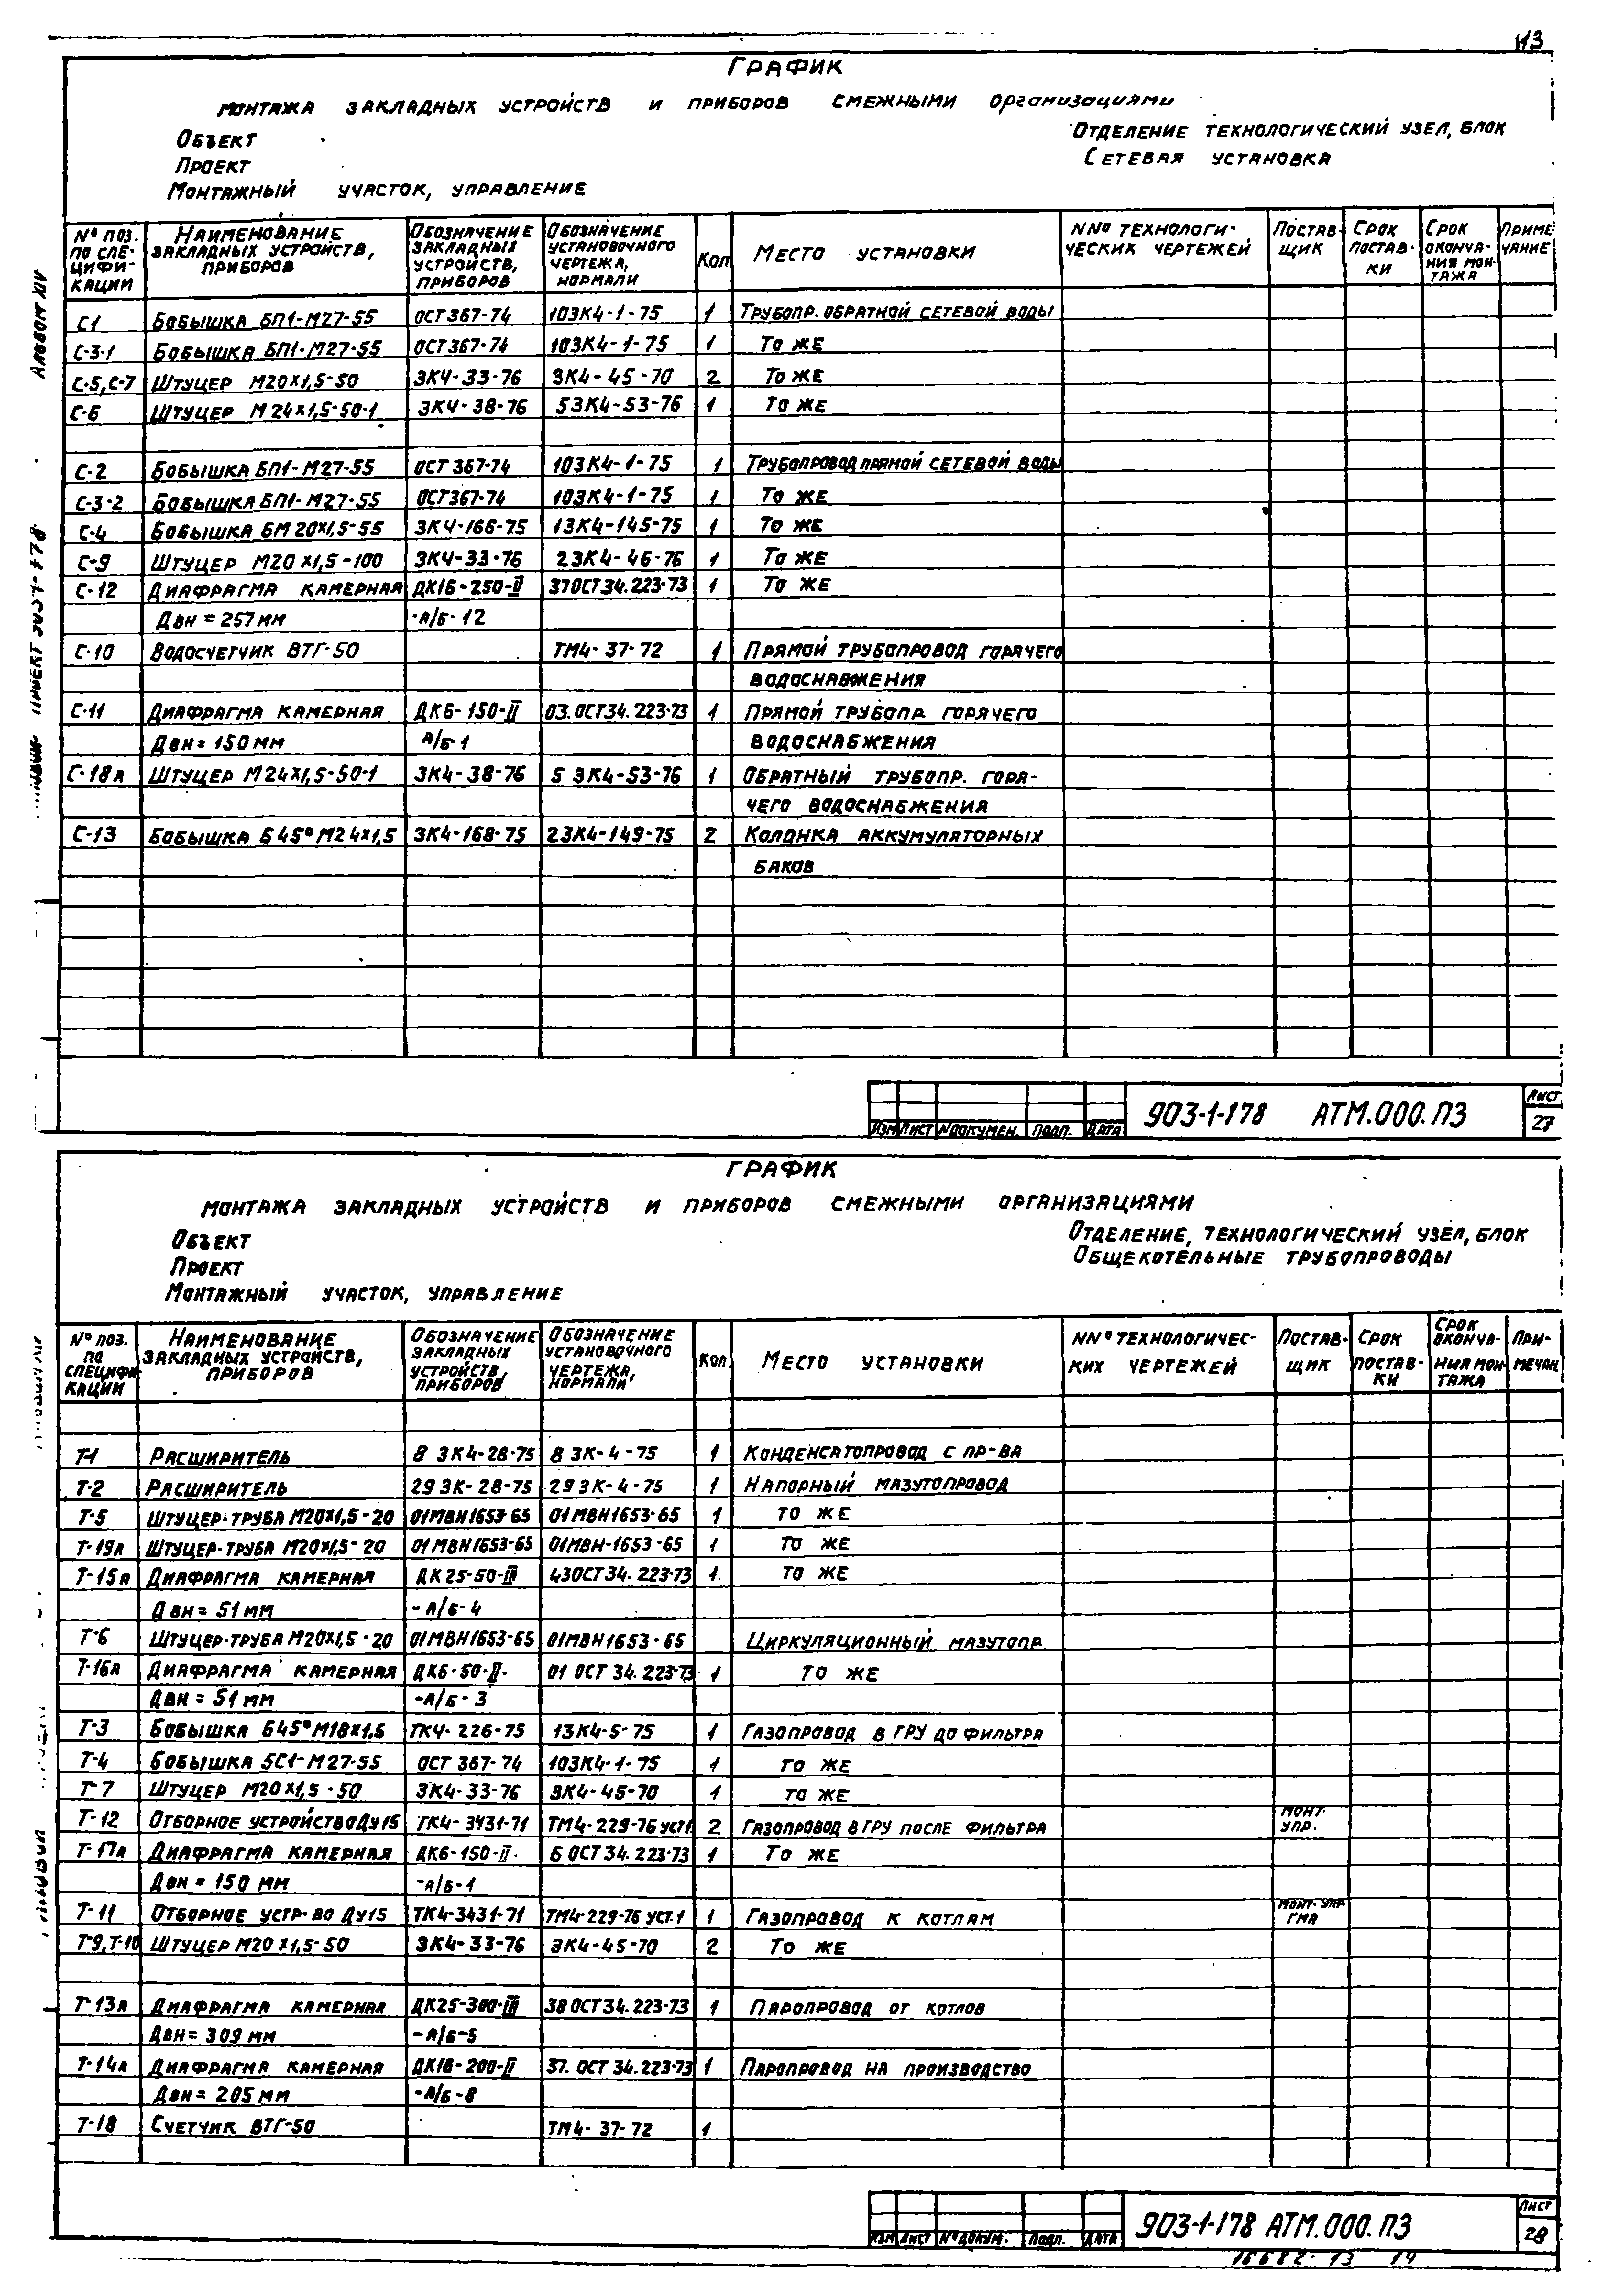 113
ГРАФИК
МОНТАЖА ЗАКЛАДНЫХ УСТРОЙСТВ И ПРИБОРОВ СМЕЖНЫМИ ОРГАНИЗАЦИЯМИ
ОБЪЕКТ
ОТДЕЛЕНИЕ ТЕХНОЛОГИЧЕСКИЙ УЗЕЛ, БЛОК
ПРОЕКТ
СЕТЕВАЯ УСТАНОВКА
МОНТАЖНЫЙ УЧАСТОК, УПРАВЛЕНИЕ
АЛЬБОМ XIV
№ ПОЗ. ПО СПЕЦИФИКАЦИИ НАИМЕНОВАНИЕ ЗАКЛАДНЫХ УСТРОЙСТВ, ПРИБОРОВ ОБОЗНАЧЕНИЕ ЗАКЛАДНЫХ УСТРОЙСТВ, ПРИБОРОВ ОБОЗНАЧЕНИЕ УСТАНОВОЧНОГО ЧЕРТЕЖА, НОРМАЛИ КОЛ МЕСТО УСТАНОВКИ NN° ТЕХНОЛОГИЧЕСКИХ ЧЕРТЕЖЕЙ ПОСТАВЩИК СРОК ПОСТАВКИ СРОК ОКОНЧАНИЯ МОНТАЖА ПРИМЕЧАНИЕ
С1 БОБЫШКА БП1-М27-55 ОСТ367-74 103К4-1-75 1 ТРУБОПР. ОБРАТНОЙ СЕТЕВОЙ ВОДЫ
С-3-1 БОБЫШКА БП1-М27-55 ОСТ367-74 103К4-1-75 1 ТО ЖЕ
С-5, С-7 ШТУЦЕР М20х1,5-50 ЗК4-33-76 3К4-45-70 2 ТО ЖЕ
С-6 ШТУЦЕР М24х1,5-50-1 ЗК4-38-76 53К4-53-76 1 ТО ЖЕ
С-2 БОБЫШКА БП1-М27-55 ОСТ 367-74 103К4-1-75 1 ТРУБОПРОВОД ПРЯМОЙ СЕТЕВОЙ ВОДЫ
С-3-2 БОБЫШКА БП1-М27-55 ОСТ367-74 103К4-1-75 1 ТО ЖЕ
С-4 БОБЫШКА БМ20х1,5-55 ЗК4-166-75 13К4-145-75 1 ТО ЖЕ
С-9 ШТУЦЕР М20х1,5-100 ЗК4-33-76 23К4-46-76 1 ТО ЖЕ
С-12 ДИАФРАГМА КАМЕРНАЯ ДК16-250-II 37ОСТ34.223-73 1 ТО ЖЕ
ДВН = 257 ММ -А/Б-12
С-10 ВОДОСЧЕТЧИК ВТГ-50 ТМ4-37-72 1 ПРЯМОЙ ТРУБОПРОВОД ГОРЯЧЕГО
ВОДОСНАБЖЕНИЯ
С-11 ДИАФРАГМА КАМЕРНАЯ ДК6-150-II 03.ОСТ34.223-73 1 ПРЯМОЙ ТРУБОПР ГОРЯЧЕГО
ДВН = 150 ММ А/Б-1 ВОДОСНАБЖЕНИЯ
С-18А ШТУЦЕР М24х1,5-50-1 ЗК4-38-76 5 ЗК4-53-76 1 ОБРАТНЫЙ ТРУБОПР. ГОРЯ-
ЧЕГО ВОДОСНАБЖЕНИЯ
С-13 БОБЫШКА Б45°М24х1,5 ЗК4-168-75 23К4-149-75 2 КОЛОНКА АККУМУЛЯТОРНЫХ
БАКОВ
ИЗМ ЛИСТ N ДОКУМЕН. ПОДП. ДАТА 903-1-178 АТМ.000.ПЗ ЛИСТ 27
ГРАФИК
МОНТАЖА ЗАКЛАДНЫХ УСТРОЙСТВ И ПРИБОРОВ СМЕЖНЫМИ ОРГАНИЗАЦИЯМИ
ОБЪЕКТ
ОТДЕЛЕНИЕ, ТЕХНОЛОГИЧЕСКИЙ УЗЕЛ, БЛОК
ПРОЕКТ
ОБЩЕКОТЕЛЬНЫЕ ТРУБОПРОВОДЫ
МОНТАЖНЫЙ УЧАСТОК, УПРАВЛЕНИЕ
№ ПОЗ. ПО СПЕЦИФИКАЦИИ НАИМЕНОВАНИЕ ЗАКЛАДНЫХ УСТРОЙСТВ, ПРИБОРОВ ОБОЗНАЧЕНИЕ ЗАКЛАДНЫХ УСТРОЙСТВ, ПРИБОРОВ ОБОЗНАЧЕНИЕ УСТАНОВОЧНОГО ЧЕРТЕЖА, НОРМАЛИ КОЛ. МЕСТО УСТАНОВКИ NN° ТЕХНОЛОГИЧЕСКИХ ЧЕРТЕЖЕЙ ПОСТАВЩИК СРОК ПОСТАВКИ СРОК ОКОНЧАНИЯ МОНТАЖА ПРИМЕЧАН.
Т-1 РАСШИРИТЕЛЬ 8 ЗК4-28-75 8 ЗК-4-75 1 КОНДЕНСАТОПРОВОД С ПР-ВА
Т-2 РАСШИРИТЕЛЬ 29 ЗК-28-75 29 ЗК-4-75 1 НАПОРНЫЙ МАЗУТОПРОВОД
Т-5 ШТУЦЕР-ТРУБА М20х1,5-20 01МВН1653-65 01МВН1653-65 1 ТО ЖЕ
Т-19А ШТУЦЕР-ТРУБА М20х1,5-20 01МВН1653-65 01МВН-1653-65 1 ТО ЖЕ
Т-15А ДИАФРАГМА КАМЕРНАЯ ДК25-50-III 43ОСТ34.223-73 1 ТО ЖЕ
ДВН = 51 ММ -А/Б-4
Т-6 ШТУЦЕР-ТРУБА М20х1,5-20 01МВН1653-65 01МВН1653-65 ЦИРКУЛЯЦИОННЫЙ МАЗУТОПР
Т-16А ДИАФРАГМА КАМЕРНАЯ ДК6-50-II- 01 ОСТ 34.223-73 1 ТО ЖЕ
ДВН = 51 ММ -А/Б-3
Т-3 БОБЫШКА Б45°М18х1,5 ТК4-226-75 13К4-5-75 1 ГАЗОПРОВОД В ГРУ ДО ФИЛЬТРА
Т-4 БОБЫШКА БС1-М27-55 ОСТ 367-74 103К4-1-75 1 ТО ЖЕ
Т-7 ШТУЦЕР М20х1,5-50 ЗК4-33-76 ЗК4-45-70 1 ТО ЖЕ
Т-12 ОТБОРНОЕ УСТРОЙСТВО ДУ15 ТК4-3431-71 ТМ4-229-76 УСТ.1 2 ГАЗОПРОВОД В ГРУ ПОСЛЕ ФИЛЬТРА МОНТ. УПР.
Т-17А ДИАФРАГМА КАМЕРНАЯ ДК6-150-II- 6 ОСТ34.223-73 1 ТО ЖЕ
ДВН = 150 ММ -А/Б-1
Т-11 ОТБОРНОЕ УСТР-ВО ДУ15 ТК4-3431-71 ТМ4-229-76 УСТ.1 1 ГАЗОПРОВОД К КОТЛАМ МОНТ. УПР ГМА
Т-9, Т-10 ШТУЦЕР М20х1,5-50 ЗК4-33-76 ЗК4-45-70 2 ТО ЖЕ
Т-13А ДИАФРАГМА КАМЕРНАЯ ДК25-300-III 38 ОСТ34.223-73 1 ПАРОПРОВОД ОТ КОТЛОВ
ДВН = 309 ММ -А/Б-5
Т-14А ДИАФРАГМА КАМЕРНАЯ ДК16-200-II 37. ОСТ 34.223-73 1 ПАРОПРОВОД НА ПРОИЗВОДСТВО
ДВН = 205 ММ -А/Б-8
Т-18 СЧЕТЧИК ВТГ-50 ТМ4-37-72 1
ИЗМ ЛИСТ № ДОКУМ. ПОДП. ДАТА 903-1-178 АТМ.000.ПЗ ЛИСТ 28
16682-13 14